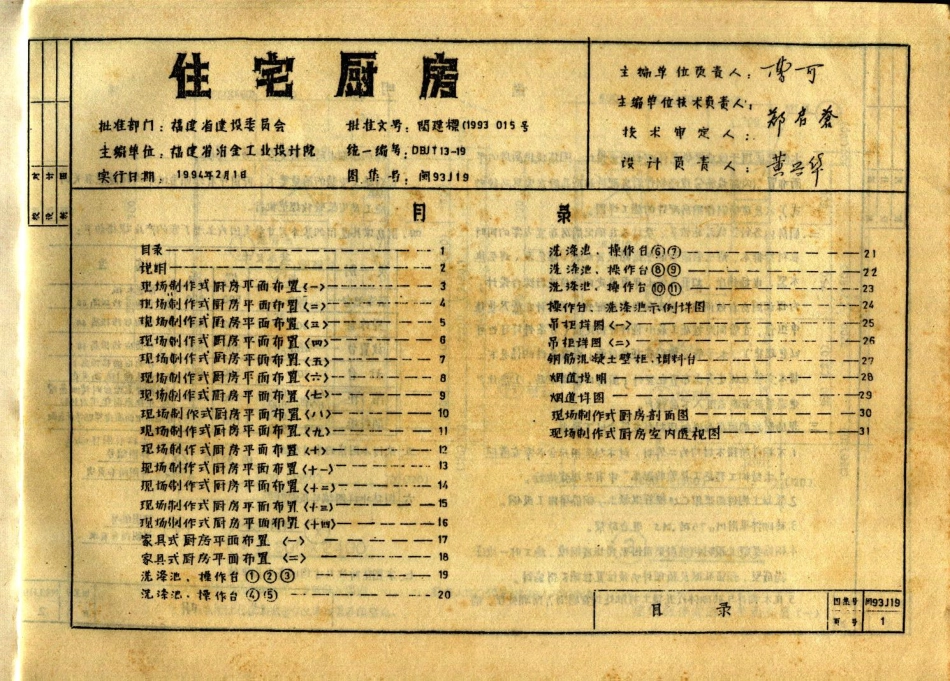 住宅厨房
批准部门：福建省建设委员会
主编单位：福建省冶金工业设计院
实行日期：1994年2月1日
批准文号：闽建标(1993 015号
统一编号：DBJT13-19
图集号：闽93J19
主编单位负责人：
主编单位技术负责人：
技术审定人：
设计负责人：黄
目 录
目录 1
说明 2
现场制作式厨房平面布置〈一〉 3
现场制作式厨房平面布置〈二〉 4
现场制作式厨房平面布置〈三〉 5
现场制作式厨房平面布置〈四〉 6
现场制作式厨房平面布置〈五〉 7
现场制作式厨房平面布置〈六〉 8
现场制作式厨房平面布置〈七〉 9
现场制作式厨房平面布置〈八〉 10
现场制作式厨房平面布置〈九〉 11
现场制作式厨房平面布置〈十〉 12
现场制作式厨房平面布置〈十一〉 13
现场制作式厨房平面布置〈十二〉 14
现场制作式厨房平面布置〈十三〉 15
现场制作式厨房平面布置〈十四〉 16
家具式厨房平面布置〈一〉 17
家具式厨房平面布置〈二〉 18
洗涤池、操作台①②③ 19
洗涤池、操作台④⑤ 20
洗涤池、操作台⑥⑦ 21
洗涤池、操作台⑧⑨ 22
洗涤池、操作台⑩⑪ 23
操作台、洗涤池示例详图 24
吊柜详图〈一〉 25
吊柜详图〈二〉 26
钢筋混凝土壁柜、调料台 27
烟道说明 28
烟道详图 29
现场制作式厨房剖面图 30
现场制作式厨房室内透视图 31
目 录
图集号 闽93J19
页 号 1